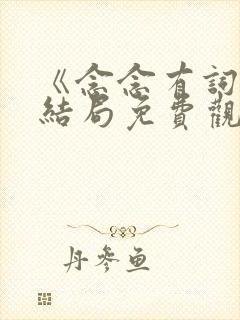 《念念有詞
結局免費觀
丹參魚